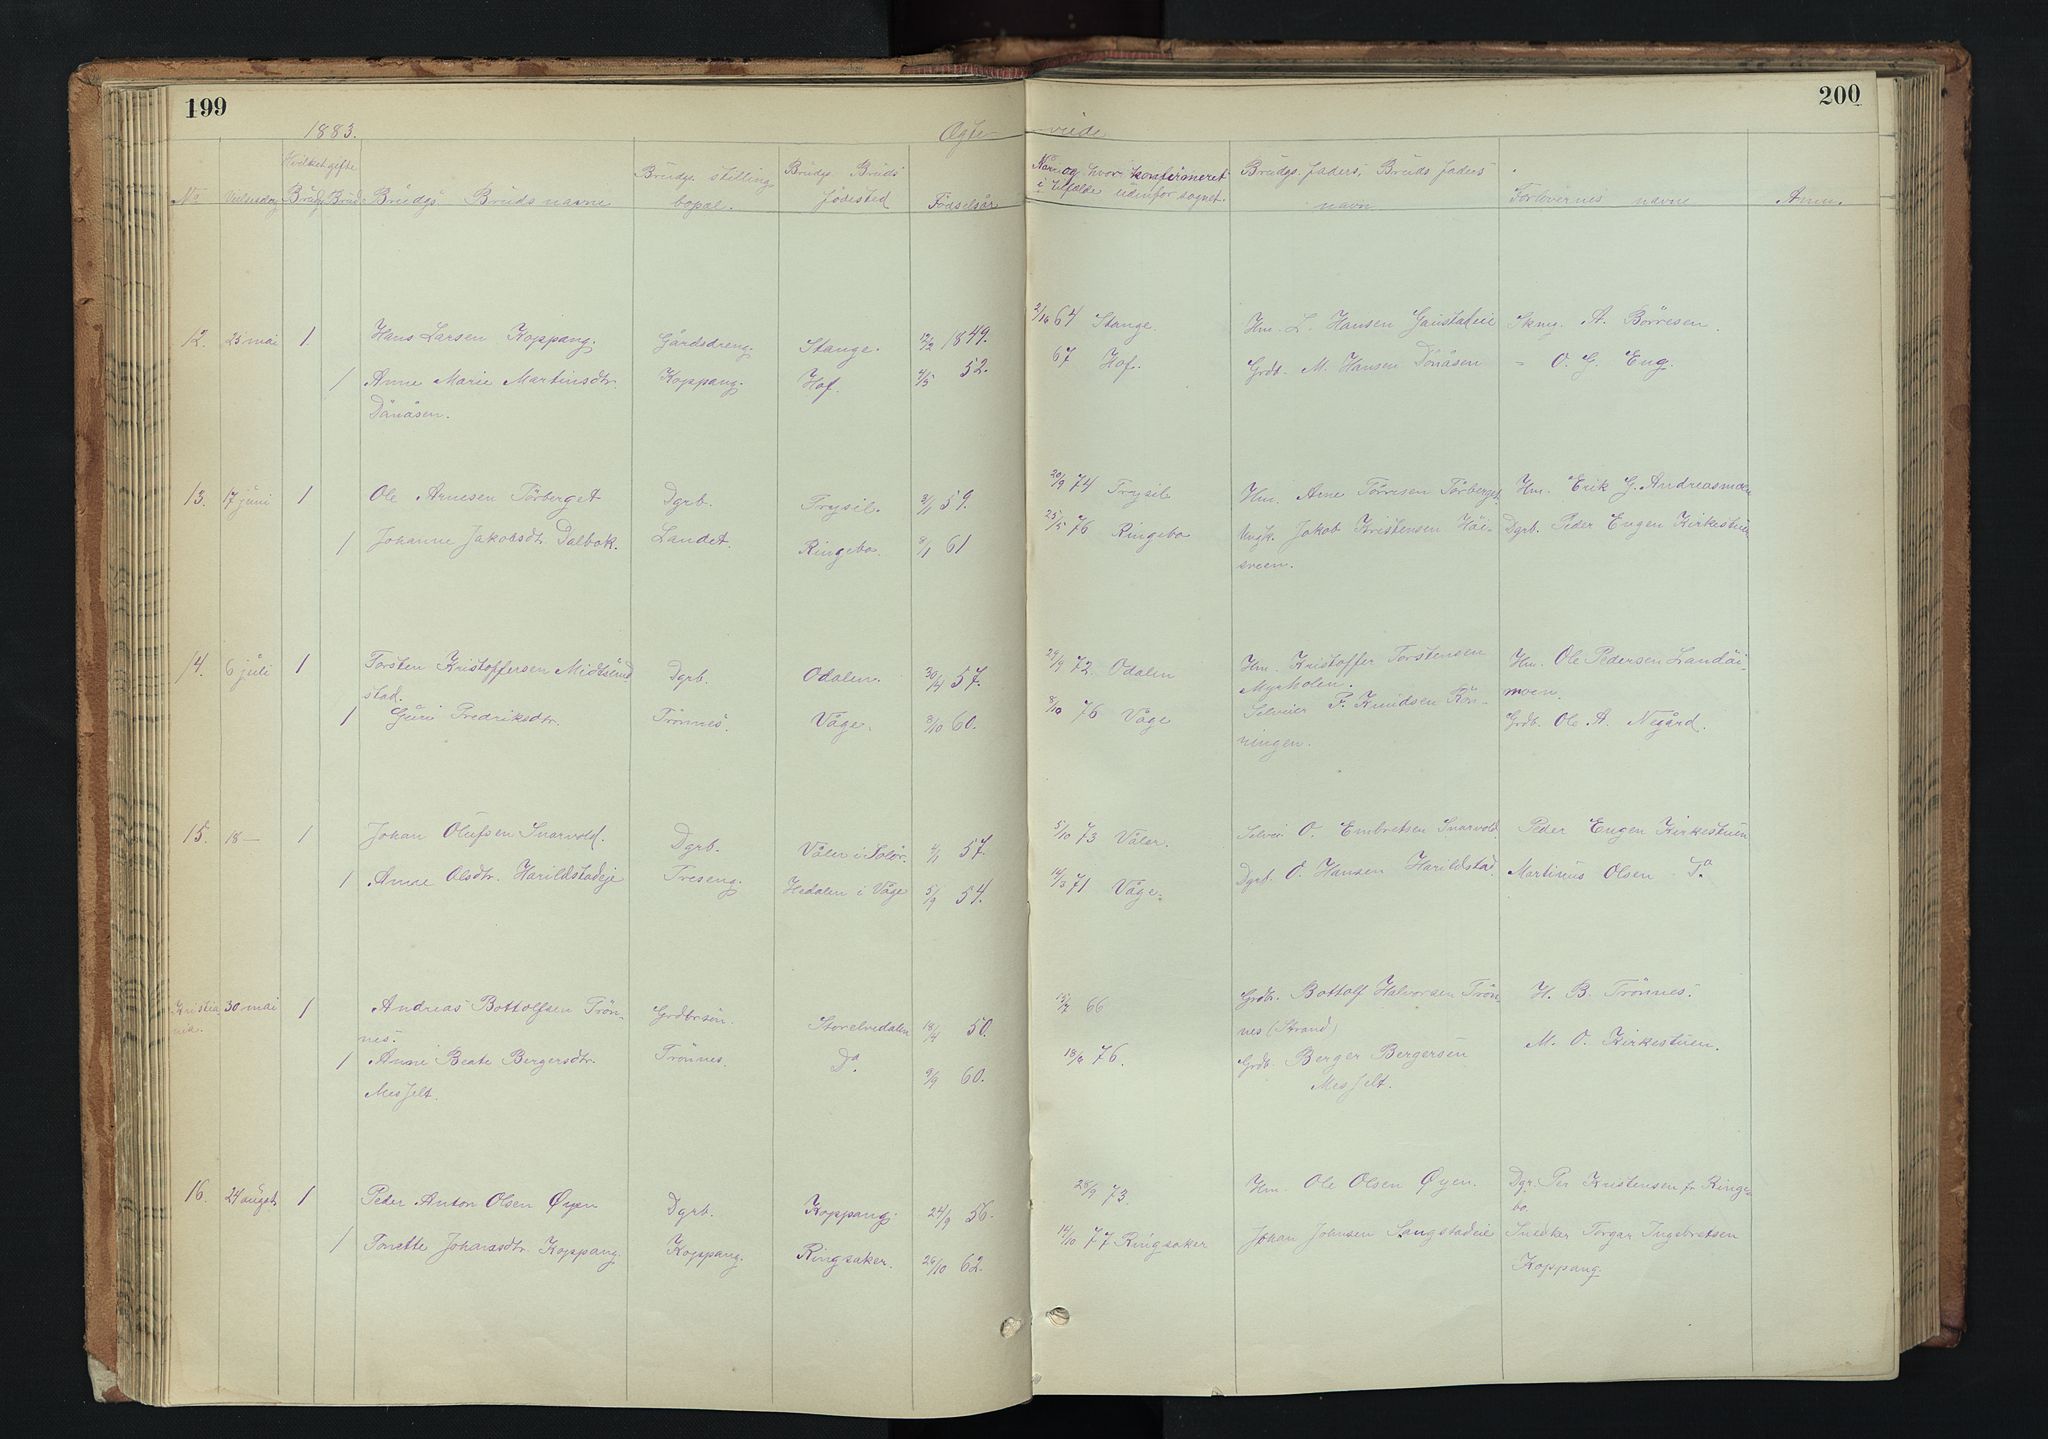 199
200
1883.
Ægte- viede
Hvilket gifte
No Vielsesdag Brudg. Brud Brudgs. Bruds navne
Brudgs. stilling
bopæl.
Brudgs. Bruds
fødested
Fødselsår
Når og hvor konfirmeret
i tilfælde udenfor sognet.
Brudgs. faders, Bruds faders
navn
Forlovernes navne
Anm.
12. 25 mai 1 Hans Larsen Koppang. Gårdsdreng. Stange. 12/2 1849. 2/10 64 Stange. Hm. L. Hansen Gaustadeie Skmg. A. Börresen.
1 Anne Marie Martinsdtr. Koppang. Hof. 4/5 52. 67 Hof. Grdb. M. Hansen Dönåsen - O. G. Eng.
Dånåsen.
13. 17 juni 1 Ole Arnesen Törberget Dgrb. Trysil. 3/1 59. 20/9 74 Trysil Hm. Arne Törresen Törberget Hm. Erik G. Andreasmoen
1 Johanne Jakobsdtr. Dalbak. Landet. Ringebo. 8/1 61 25/5 76 Ringebo Ungk. Jakob Kristensen Höi- Dgrb. Peder Engen Kirkestuen
sveen.
14. 6 juli 1 Torsten Kristoffersen Midtsund- Dgrb. Odalen. 30/4 57. 29/9 72. Odalen Hm. Kristoffer Torstensen Hm. Ole Pedersen Landåi-
stad. Myrholen. moen.
1 Guri Fredriksdtr. Trönnes. Våge. 8/10 60. 8/10 76 Våge Selveier F. Knudsen Rön- Grdb. Ole A. Negård.
ningen.
15. 18 — 1 Johan Olufsen Snarvold. Dgrb. Våler i Solör. 4/1 57. 5/10 73 Våler. Selvei. O. Embretsen Snarvold Peder Engen Kirkestuen
1 Anne Olsdtr. Harildstadeje Treseng. Hedalen i Våge 5/9 54. 14/5 71 Våge. Dgrb. O. Hansen Harildstad. Martinus Olsen
Kristia- 30 mai 1 Andreas Bottolfsen Trön- Grdbrsön. Storelvedalen 18/4 50. 15/7 66 Grdbr. Bottolf Halvorsen Trön H. B. Trönnes.
nia. nes. nes (Strand)
1 Anne Beate Bergersdtr. Trönnes. Do. 9/9 60. 18/6 76. Grdb. Berger Bergersen M. O. Kirkestuen.
Mesfelt. Mesfelt.
16. 24 august. 1 Peder Anton Olsen Øyen Dgrb. Koppang. 24/9 56. 28/9 73. Hm. Ole Olsen Øyen. Dgr. Per Kristensen fr. Ringe-
bo.
1 Tonette Johansdtr. Koppang. Koppang. Ringsaker. 26/10 62. 14/10 77 Ringsaker Johan Johnsen Sangstadeie Snedker Torgar Ingebretsen
Koppang.